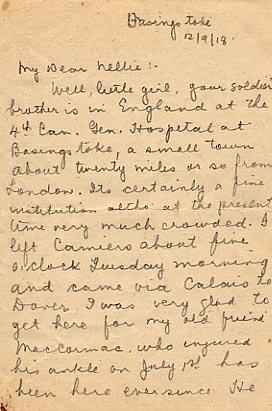 Basingstoke
12/9/18.
My Dear Nellie:-
Well, little girl, your soldier
brother is in England at the
4th Can. Gen. Hospital at
Basingstoke, a small town
about twenty miles or so from
London. Its certainly a fine
institution altho at the present
time very much crowded. I
left Camiers about five
o'clock Tuesday morning
and came via Calais to
Dover. I was very glad to
get here for my old friend
MacCormac, who injured
his ankle on July 1st has
been here ever since. He